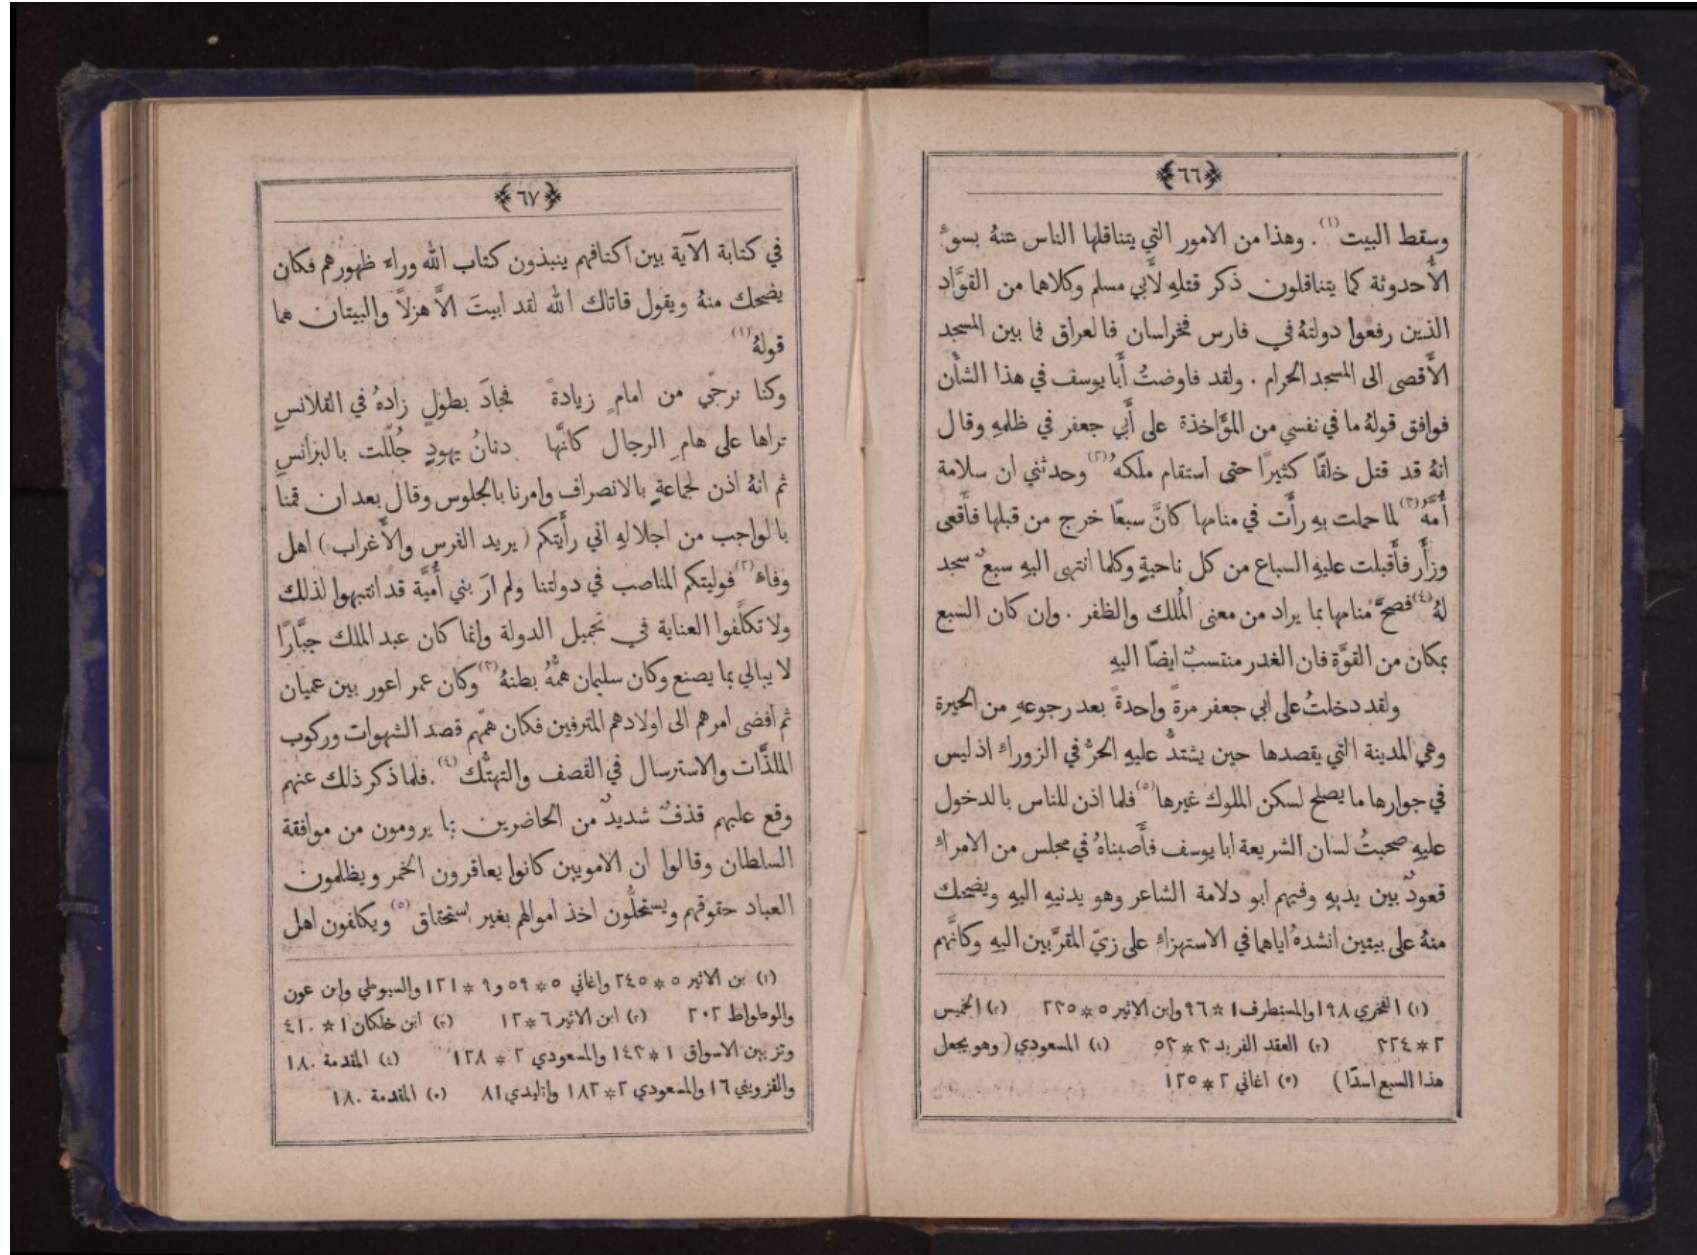 ﴿٦٦﴾
وسقط البيت (١). وهذا من الامور التي يتناقلها الناس عنهُ بسوءِ
الأُحدوثة كما يتناقلون ذكر قتلهِ لأَبي مسلم وكلاهما من القوَّاد
الذين رفعوا دولتهُ في فارس فخراسان فالعراق فما بين المسجد
الأَقصى الى المسجد الحرام . ولقد فاوضتُ أَبا يوسف في هذا الشأْن
فوافق قولهُ ما في نفسي من المؤَاخذة على أَبي جعفر في ظلمهِ وقال
انهُ قد قتل خلقًا كثيرًا حتى استقام ملكهُ (٢) وحدثني ان سلامة
أُمَّهُ (٣) لما حملت بهِ رأَت في منامها كانَّ سبعًا خرج من قبلها فأَقعى
وزأَر فأَقبلت عليهِ السباع من كل ناحيةٍ وكلما انتهى اليهِ سبعٌ سجد
لهُ (٤) فصحَّ منامها بما يراد من معنى المُلك والظفر . وان كان السبع
بمكان من القوَّة فان الغدر منتسبٌ ايضًا اليهِ
ولقد دخلتُ على ابي جعفر مرةً واحدةً بعد رجوعهِ من الحيرة
وهي المدينة التي يقصدها حين يشتدُّ عليهِ الحرُّ في الزوراءِ اذ ليس
في جوارها ما يصلح لسكن الملوك غيرها (٥) فلما اذن للناس بالدخول
عليهِ صحبتُ لسان الشريعة ابا يوسف فأَصبناهُ في مجلس من الامراءِ
قعودٌ بين يديهِ وفيهم ابو دلامة الشاعر وهو يدنيهِ اليهِ ويضحك
منهُ على بيتين انشدهُ اياهما في الاستهزاءِ على زيّ المقرَّبين اليهِ وكأنَّهم
(١) الفخري ١٩٨ والمستطرف ١ * ٩٦ وابن الاثير ٥ * ٢٢٥ (٢) الخميس
٢ * ٣٢٤ (٣) العقد الفريد ٣ * ٥٣ (٤) المسعودي (وهو يجعل
هذا السبع اسدًا) (٥) اغاني ٢ * ١٢٥
﴿٦٧﴾
في كتابة الآية بين اكتافهم ينبذون كتاب الله وراءَ ظهورهم فكان
يضحك منهُ ويقول قاتلك الله لقد ابيتَ الاَّ هزلاً والبيتان هما
قولهُ (١)
وكنا نرجّي من امامٍ زيادةً فجادَ بطولٍ زادهُ في القلانسِ
تراها على هامِ الرجال كانَّها دنانُ يهودٍ جُلّلت بالبرانسِ
ثم انهُ اذن لجماعةٍ بالانصراف وامرنا بالجلوس وقال بعد ان قمنا
بالواجب من اجلالهِ اني رأَيتكم (يريد الفرس والأَغراب) اهل
وفاءٍ (٢) فوليتكم المناصب في دولتنا ولم ارَ بني أُميَّة قد انتبهوا لذلك
ولا تكلَّفوا العناية في تجميل الدولة وانما كان عبد الملك جبَّارًا
لا يبالي بما يصنع وكان سليمان همُّهُ بطنهُ (٣) وكان عمر اعور بين عميان
ثم افضى امرهم الى اولادهم المترفين فكان همّهم قصد الشهوات وركوب
الملذَّات والاسترسال في القصف والتهتُّك (٤). فلما ذكر ذلك عنهم
وقع عليهم قذفٌ شديدٌ من الحاضرين بما يرومون من موافقة
السلطان وقالوا ان الامويين كانوا يعاقرون الخمر ويظلمون
العباد حقوقهم ويستحلُّون اخذ اموالهم بغير استحقاق (٥) ويكافون اهل
(١) بن الاثير ٥ * ٢٤٥ واغاني ٥ * ٥٩ و ٩ * ١٢١ والسيوطي وابن عون
والوطواط ٢٠٢ (٢) ابن الاثير ٦ * ١٢ (٣) ابن خلكان ١ * ٤١٠
وتزيين الاسواق ١ * ١٤٣ والمسعودي ٢ * ١٢٨ (٤) المقدمة ١٨٠
والقزويني ١٦ والمسعودي ٢ * ١٨٢ واتليدي ٨١ (٥) المقدمة ١٨٠